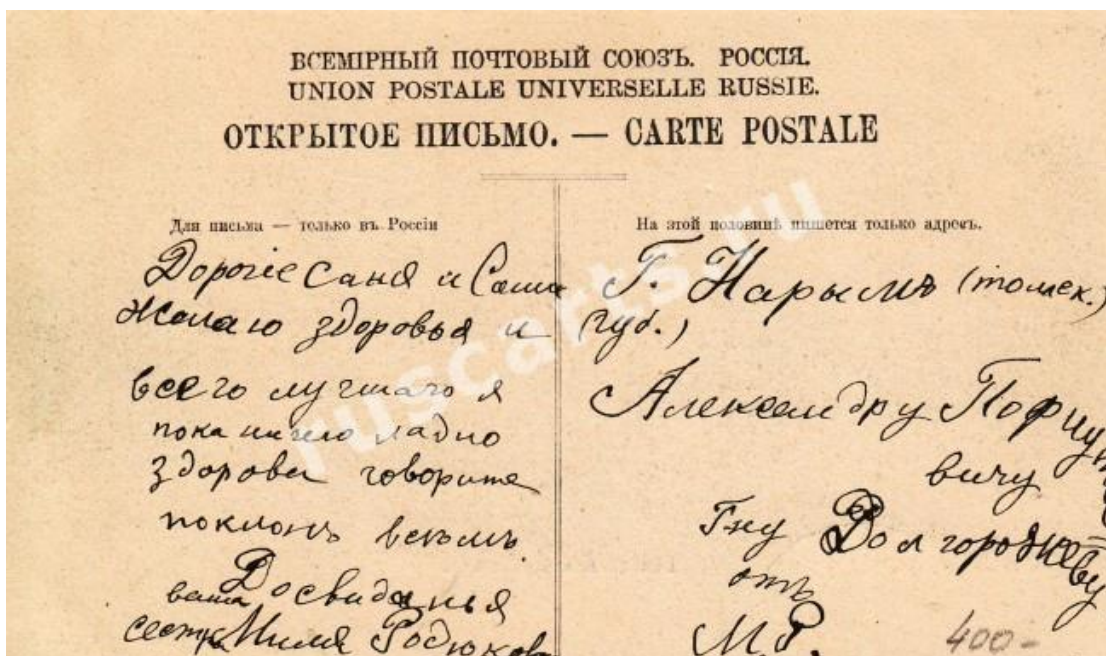 ВСЕМІРНЫЙ ПОЧТОВЫЙ СОЮЗЪ. РОССІЯ.
UNION POSTALE UNIVERSELLE RUSSIE.
ОТКРЫТОЕ ПИСЬМО. — CARTE POSTALE
Для письма — только въ Россіи
Дорогіе Саня и Саша
Желаю здоровья и
всего лучшаго я
пока ладно
здорова говорите
поклонъ всѣмъ.
Досвиданья
ваша
сестра Миля Родюкова
На этой половинѣ пишется только адресъ.
Г. Нарымъ (томск.
губ.)
Александру
вичу
Гну Волгородневу
отъ
М.Р.
400-
ruscarts.ru